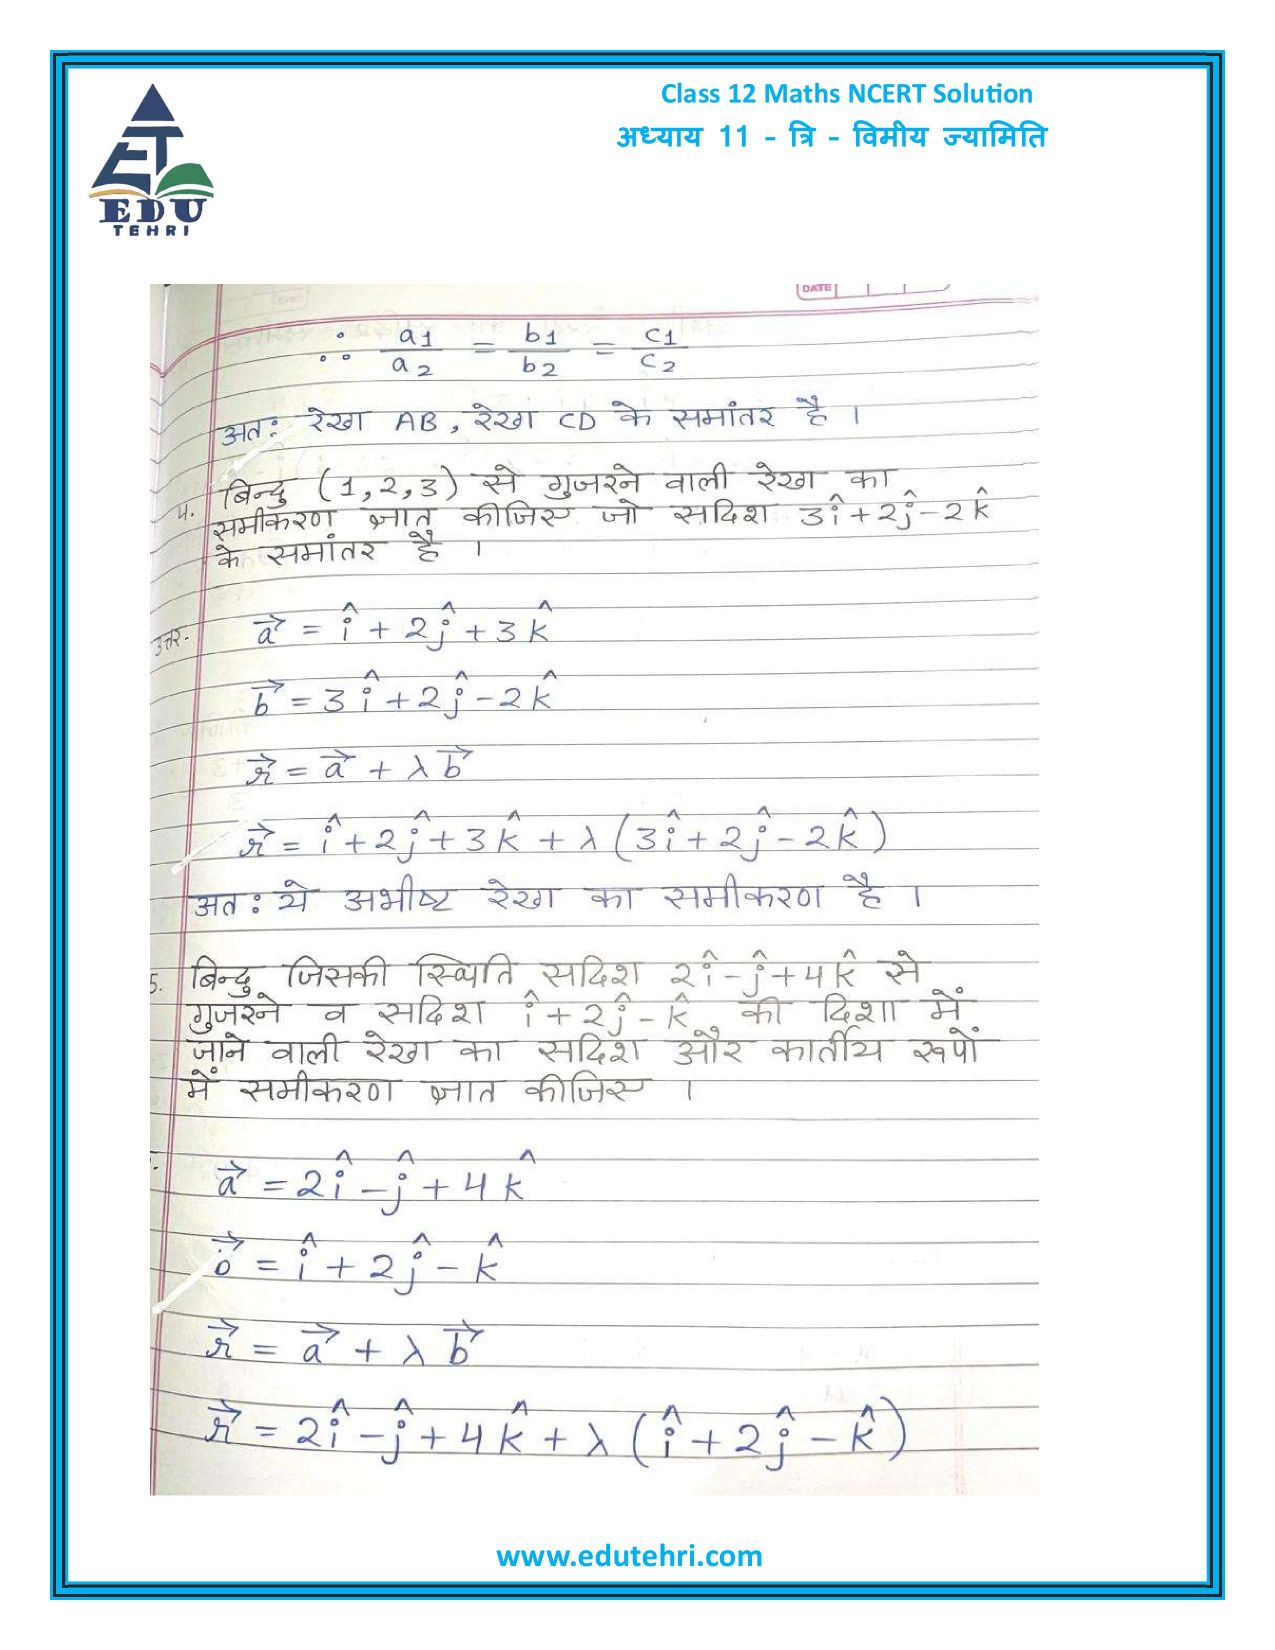 Class 12 Maths NCERT Solution
अध्याय 11 - त्रि - विमीय ज्यामिति
EDU
TEHRI
DATE
∵ a1/a2 = b1/b2 = c1/c2
अतः रेखा AB, रेखा CD के समांतर है ।
4. बिन्दु (1,2,3) से गुजरने वाली रेखा का
समीकरण ज्ञात कीजिए जो सदिश 3î+2ĵ-2k̂
के समांतर है ।
उत्तर- a⃗ = î + 2ĵ + 3k̂
b⃗ = 3î + 2ĵ - 2k̂
r⃗ = a⃗ + λb⃗
r⃗ = î + 2ĵ + 3k̂ + λ(3î + 2ĵ - 2k̂)
अतः ये अभीष्ट रेखा का समीकरण है ।
5. बिन्दु जिसकी स्थिति सदिश 2î-ĵ+4k̂ से
गुजरने व सदिश î+2ĵ-k̂ की दिशा में
जाने वाली रेखा का सदिश और कार्तीय रूपों
में समीकरण ज्ञात कीजिए ।
a⃗ = 2î - ĵ + 4k̂
b⃗ = î + 2ĵ - k̂
r⃗ = a⃗ + λb⃗
r⃗ = 2î - ĵ + 4k̂ + λ(î + 2ĵ - k̂)
www.edutehri.com